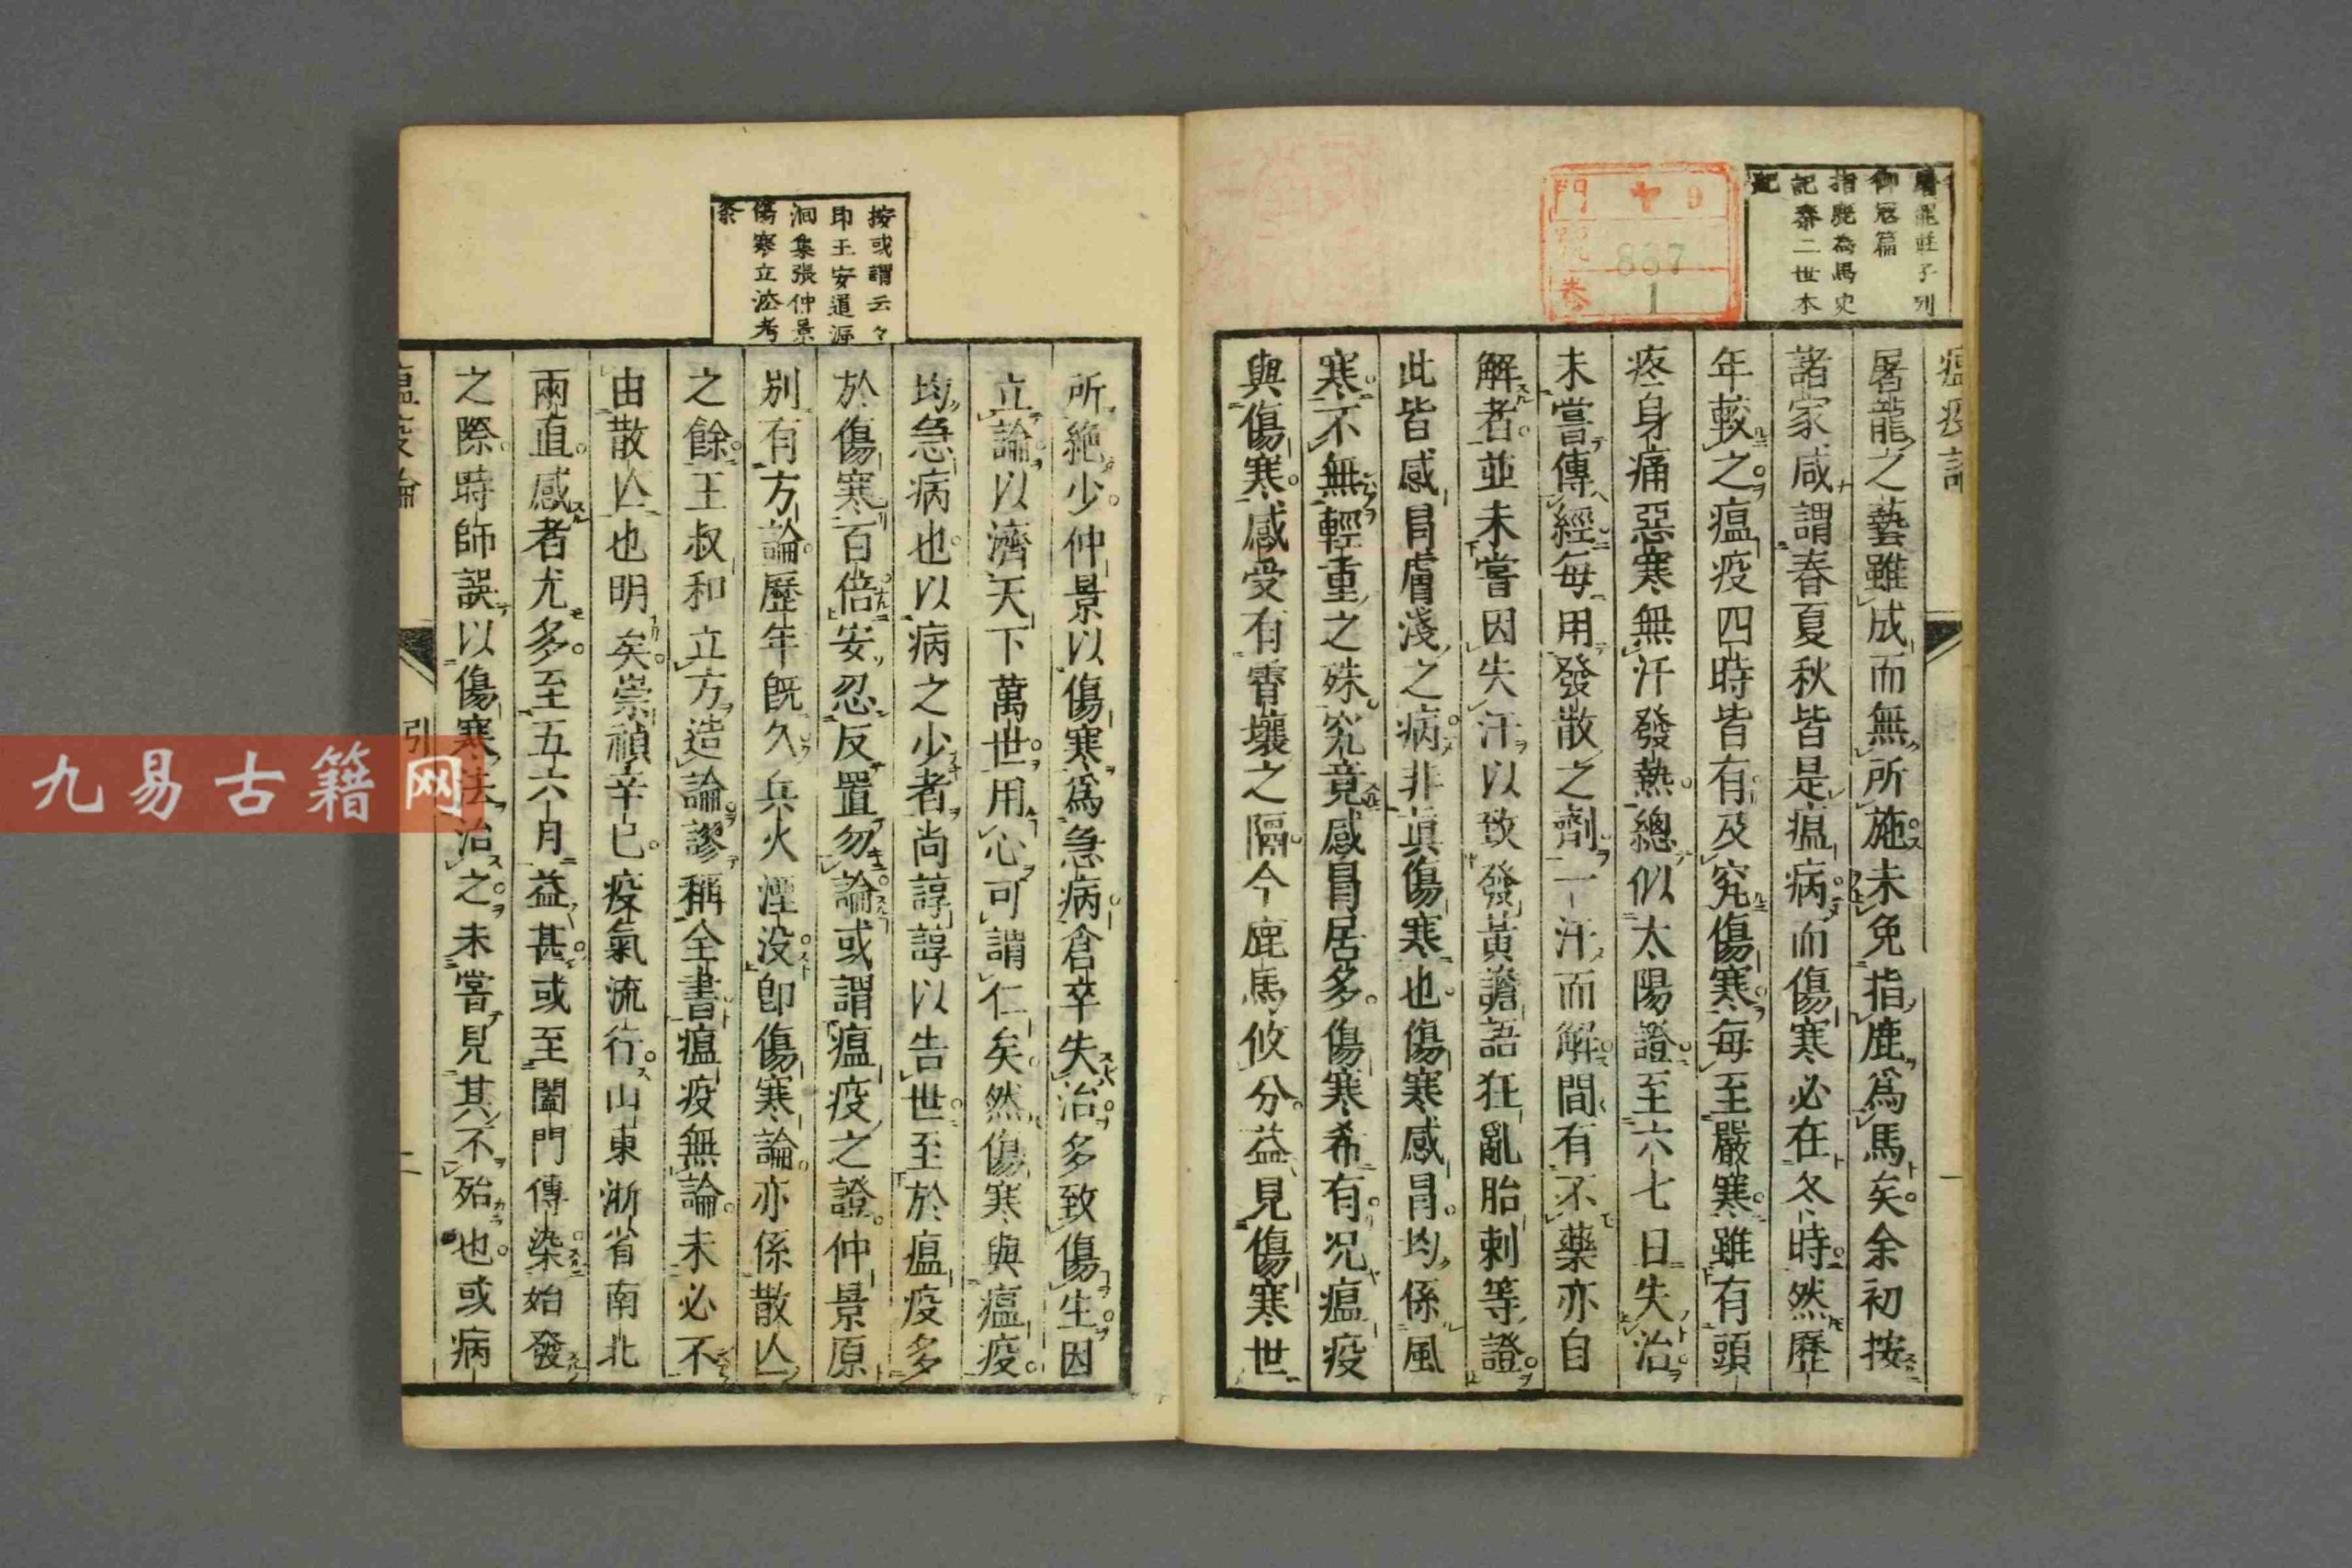 屠龍莊子列
御冠篇
指鹿為馬史
記秦二世本
紀
門 ヤ 9
號 887
卷 1
瘟疫論
屠龍之藝雖成而無所施未免指鹿爲馬矣余初按
諸家咸謂春夏秋皆是瘟病而傷寒必在冬時然歷
年較之瘟疫四時皆有及究傷寒每至嚴寒雖有頭
疼身痛惡寒無汗發熱總似太陽證至六七日失治
未嘗傳經每用發散之劑一汗而解間有不藥亦自
解者並未嘗因失汗以致發黃譫語狂亂胎刺等證
此皆感冒膚淺之病非眞傷寒也傷寒感冒均係風
寒不無輕重之殊究竟感冒居多傷寒希有况瘟疫
與傷寒感受有霄壤之隔今鹿馬攸分益見傷寒世
一
按或謂云々
即王安道源
洄集張仲景
傷寒立法考
条
所絶少仲景以傷寒爲急病倉卒失治多致傷生因
立論以濟天下萬世用心可謂仁矣然傷寒與瘟疫
均急病也以病之少者尚諄諄以告世至於瘟疫多
於傷寒百倍安忍反置勿論或謂瘟疫之證仲景原
別有方論歷年既久兵火湮没卽傷寒論亦係散亾
之餘王叔和立方造論謬稱全書瘟疫無論未必不
由散亾也明矣崇禎辛巳疫氣流行山東浙省南北
兩直感者尤多至五六月益甚或至闔門傳染始發
之際時師誤以傷寒法治之未嘗見其不殆也或病
瘟疫論
引
二
九易古籍网